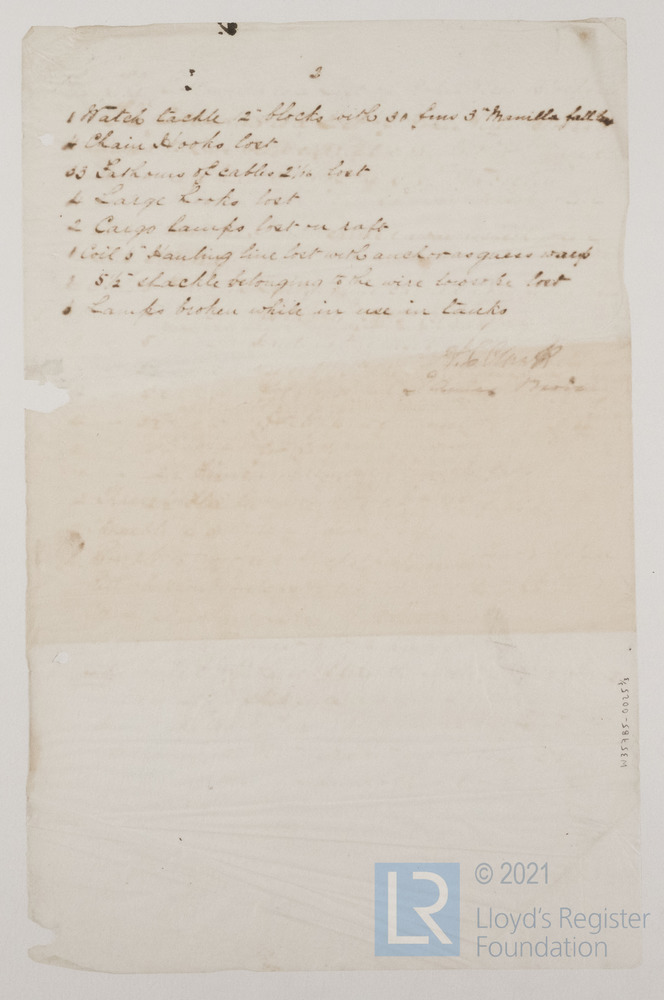 2
1 Watch tackle 2" blocks with 30 fms 3" Manilla fall lost
4 Chain Hooks lost
33 Fathoms of cables lost
4 Large Hooks lost
2 Cargo lamps lost on raft
1 Coil 5" Hauling line lost with anchor as guess warp
1 5½" shackle belonging to the wire towrope lost
6 Lamps broken while in use in tanks
W35785-0025
© 2021
LR
Lloyd's Register
Foundation